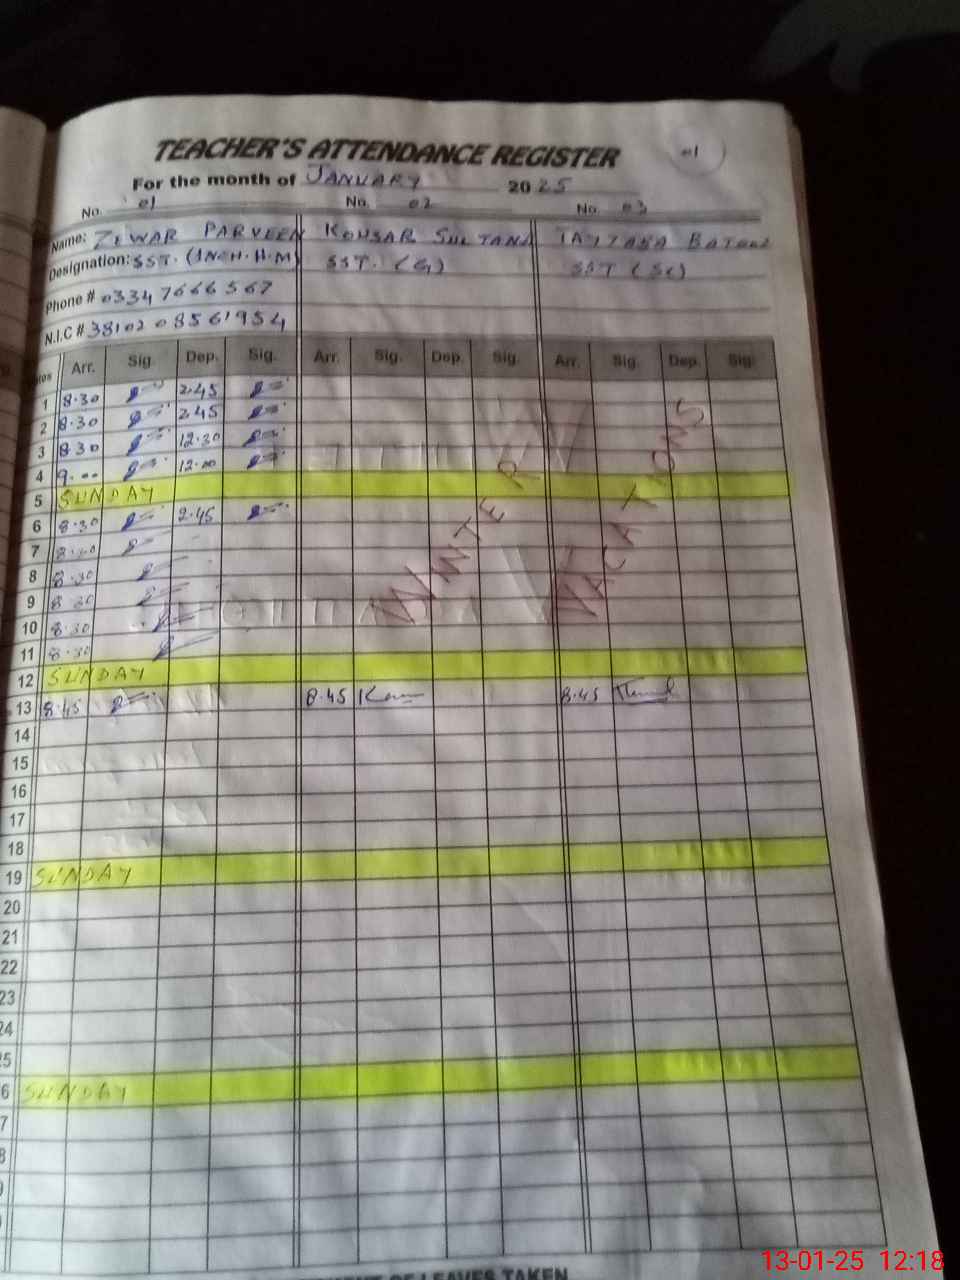 TEACHER'S ATTENDANCE REGISTER
For the month of JANUARY 2025
No. 01 No. 02 No. 03
Name: ZEWAR PARVEEN KOUSAR SULTANA TAYYABA BATOOL
Designation: SST. (INCH. H.M) SST. (G) SST (SC)
Phone # 03347666567
N.I.C # 38102 08561954
Arr. Sig. Dep. Sig. Arr. Sig. Dep. Sig. Arr. Sig. Dep. Sig.
1 8.30 2.45
2 8.30 2.45
3 8.30 12.30
4 9.00 12.00
5 SUNDAY
6 8.30 2.45
7 8.30
8 8.30
9 8.30
10 8.30
11 8.30
WINTER VACATIONS
12 SUNDAY
13 8.45 8.45 8.45
14
15
16
17
18
19 SUNDAY
20
21
22
23
24
25
6 SUNDAY
7
8
OF LEAVES TAKEN
13-01-25 12:18